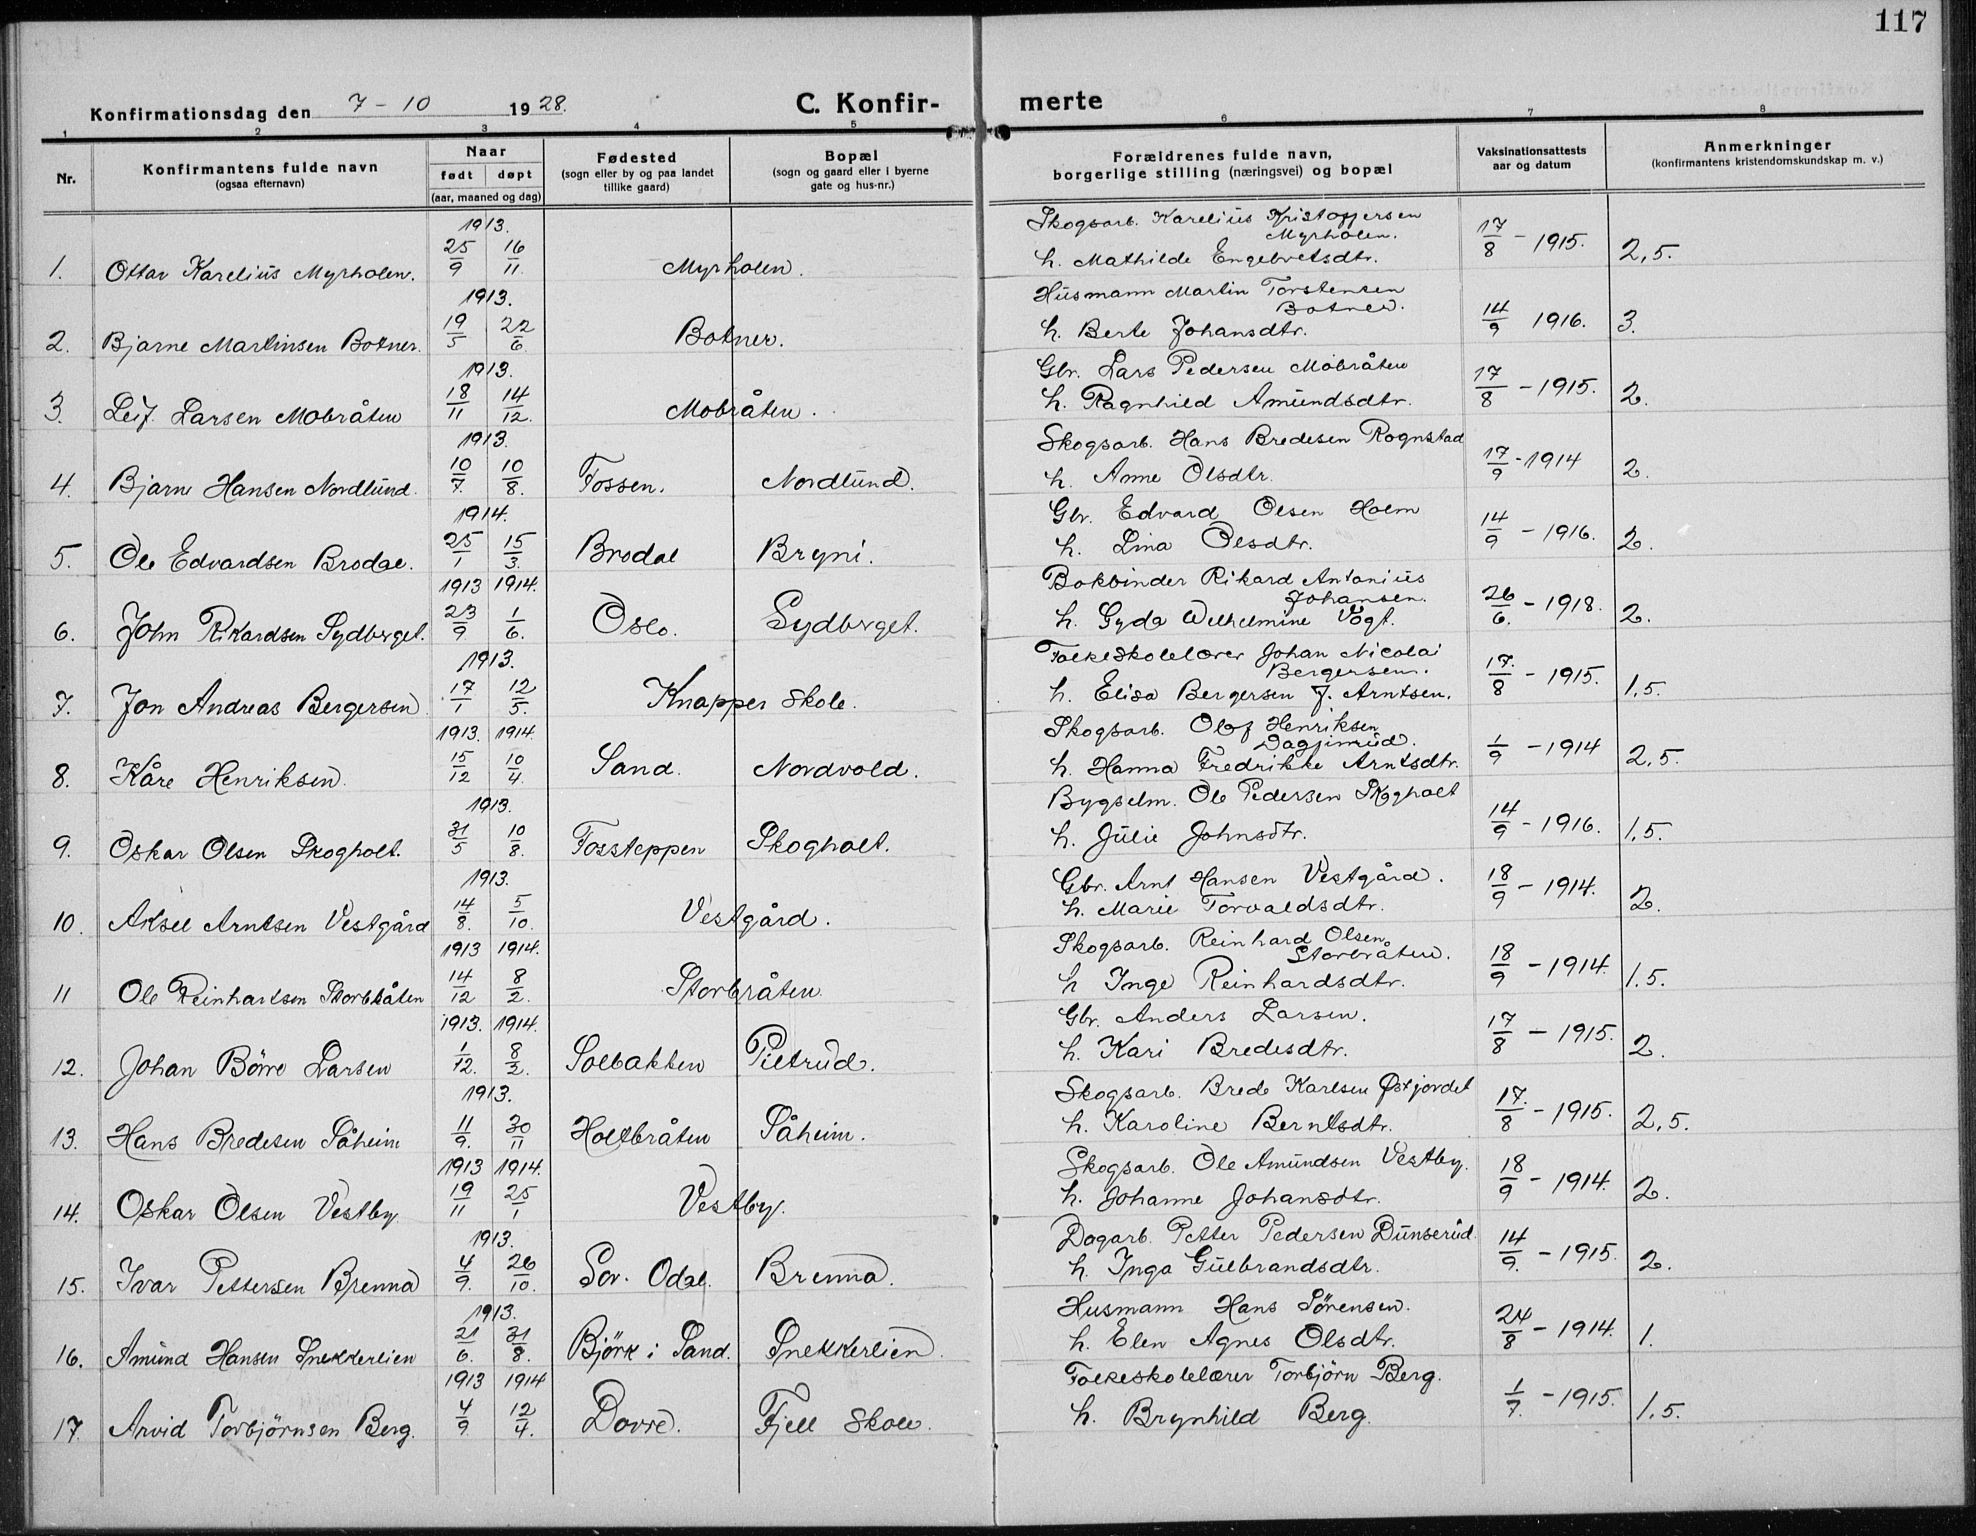 117
Konfirmationsdag den 7 - 10 1928.
C. Konfir-merte
1 2 3 4 5 6 7 8
Nr.
Konfirmantens fulde navn
(ogsaa efternavn)
Naar
født døpt
(aar, maaned og dag)
Fødested
(sogn eller by og paa landet
tillike gaard)
Bopæl
(sogn og gaard eller i byerne
gate og hus-nr.)
Forældrenes fulde navn,
borgerlige stilling (næringsvei) og bopæl
Vaksinationsattests
aar og datum
Anmerkninger
(konfirmantens kristendomskundskap m. v.)
1913. Skogsarb. Karelius Kristoffersen
Myrholen.
1. Ottar Karelius Myrholen. 25/9 16/11. Myrholen. h. Mathilde Engebretsdtr. 17/8 - 1915. 2,5.
1913. Husmann Martin Torstensen
Botner.
2. Bjarne Martinsen Botner. 19/5 22/6. Botner. h. Berte Johansdtr. 14/9 1916. 3.
1913. Gbr. Lars Pedersen Mobråten
3. Leif Larsen Mobråten 18/11 14/12. Mobråten. h. Ragnhild Amundsdtr. 17/8 - 1915. 2.
1913. Skogsarb. Hans Bredesen Rognstad
4. Bjarne Hansen Nordlund. 10/7. 10/8. Fossen. Nordlund. h. Anne Olsdtr. 17/9 - 1914 2.
1914. Gbr. Edvard Olsen Holm
5. Ole Edvardsen Brodal. 25/1 15/3. Brodal Bryni. h. Lina Olsdtr. 14/9 - 1916. 2.
1913 1914. Bokbinder Rikard Antonius
Johansen.
6. John Rikardsen Sydberget. 23/9 1/6. Oslo. Sydberget. h. Gyda Wilhelmine Vogt. 26/6. - 1918. 2.
1913. Folkeskolelærer Johan Nicolai
Bergersen.
7. Jon Andreas Bergersen 17/1 12/5. Knapper skole. h. Elisa Bergersen f. Arntsen. 17./8 - 1915. 1,5.
1913. 1914. Skogsarb. Olof Henriksen
Dagfinrud.
8. Kåre Henriksen. 15/12 10/4. Sand. Nordvold. h. Hanna Fredrikke Arntsdtr. 1/9 - 1914 2,5.
1913. Bygselm. Ole Pedersen Skogholt
9. Oskar Olsen Skogholt. 31/5 10/8. Fossteppen Skogholt. h. Julie Johnsdtr. 14/9 - 1916. 1,5.
1913. Gbr. Arnt Hansen Vestgård.
10. Aksel Arntsen Vestgård 14/8. 5/10. Vestgård. h. Marie Torvaldsdtr. 18/9 - 1914. 2.
1913 1914. Skogsarb. Reinhard Olsen
Storbråten.
11 Ole Reinhartsen Storbråten 14/12 8/2. Storbråten. h Inge Reinhardsdtr. 18/9 - 1914. 1.5.
1913. 1914. Gbr. Anders Larsen.
12. Johan Börre Larsen 1/12. 8/2. Solbakken Piltrud. h. Kari Bredesdtr. 17/8 - 1915. 2.
1913. Skogsarb. Brede Karlsen Østjordet
13. Hans Bredesen Såheim 11/9. 30/11 Holtbråten Såheim. h. Karoline Berntsdtr. 17./8 - 1915. 2,5.
1913 1914. Skogsarb. Ole Amundsen Vestby.
14. Oskar Olsen Vestby 19/11 25/1 Vestby. h. Johanne Johansdtr. 18/9 - 1914. 2.
1913. Dagarb. Petter Pedersen Dunserud.
15. Ivar Pettersen Brenna 4/9. 26/10. Sør. Odal. Brenna. h. Inga Gulbrandsdtr. 14/9. - 1915. 2.
1913. Husmann Hans Sørensen.
16. Amund Hansen Snekkerlien 21/6. 31/8. Björk i Sand. Snekkerlien. h. Elen Agnes Olsdtr. 24/8 - 1914. 1.
1913 1914 Folkeskolelærer Torbjörn Berg.
17. Arvid Torbjörnsen Berg. 4/9 12/4. Dovre. Fjell skole. h. Brynhild Berg. 1/7. - 1915. 1,5.